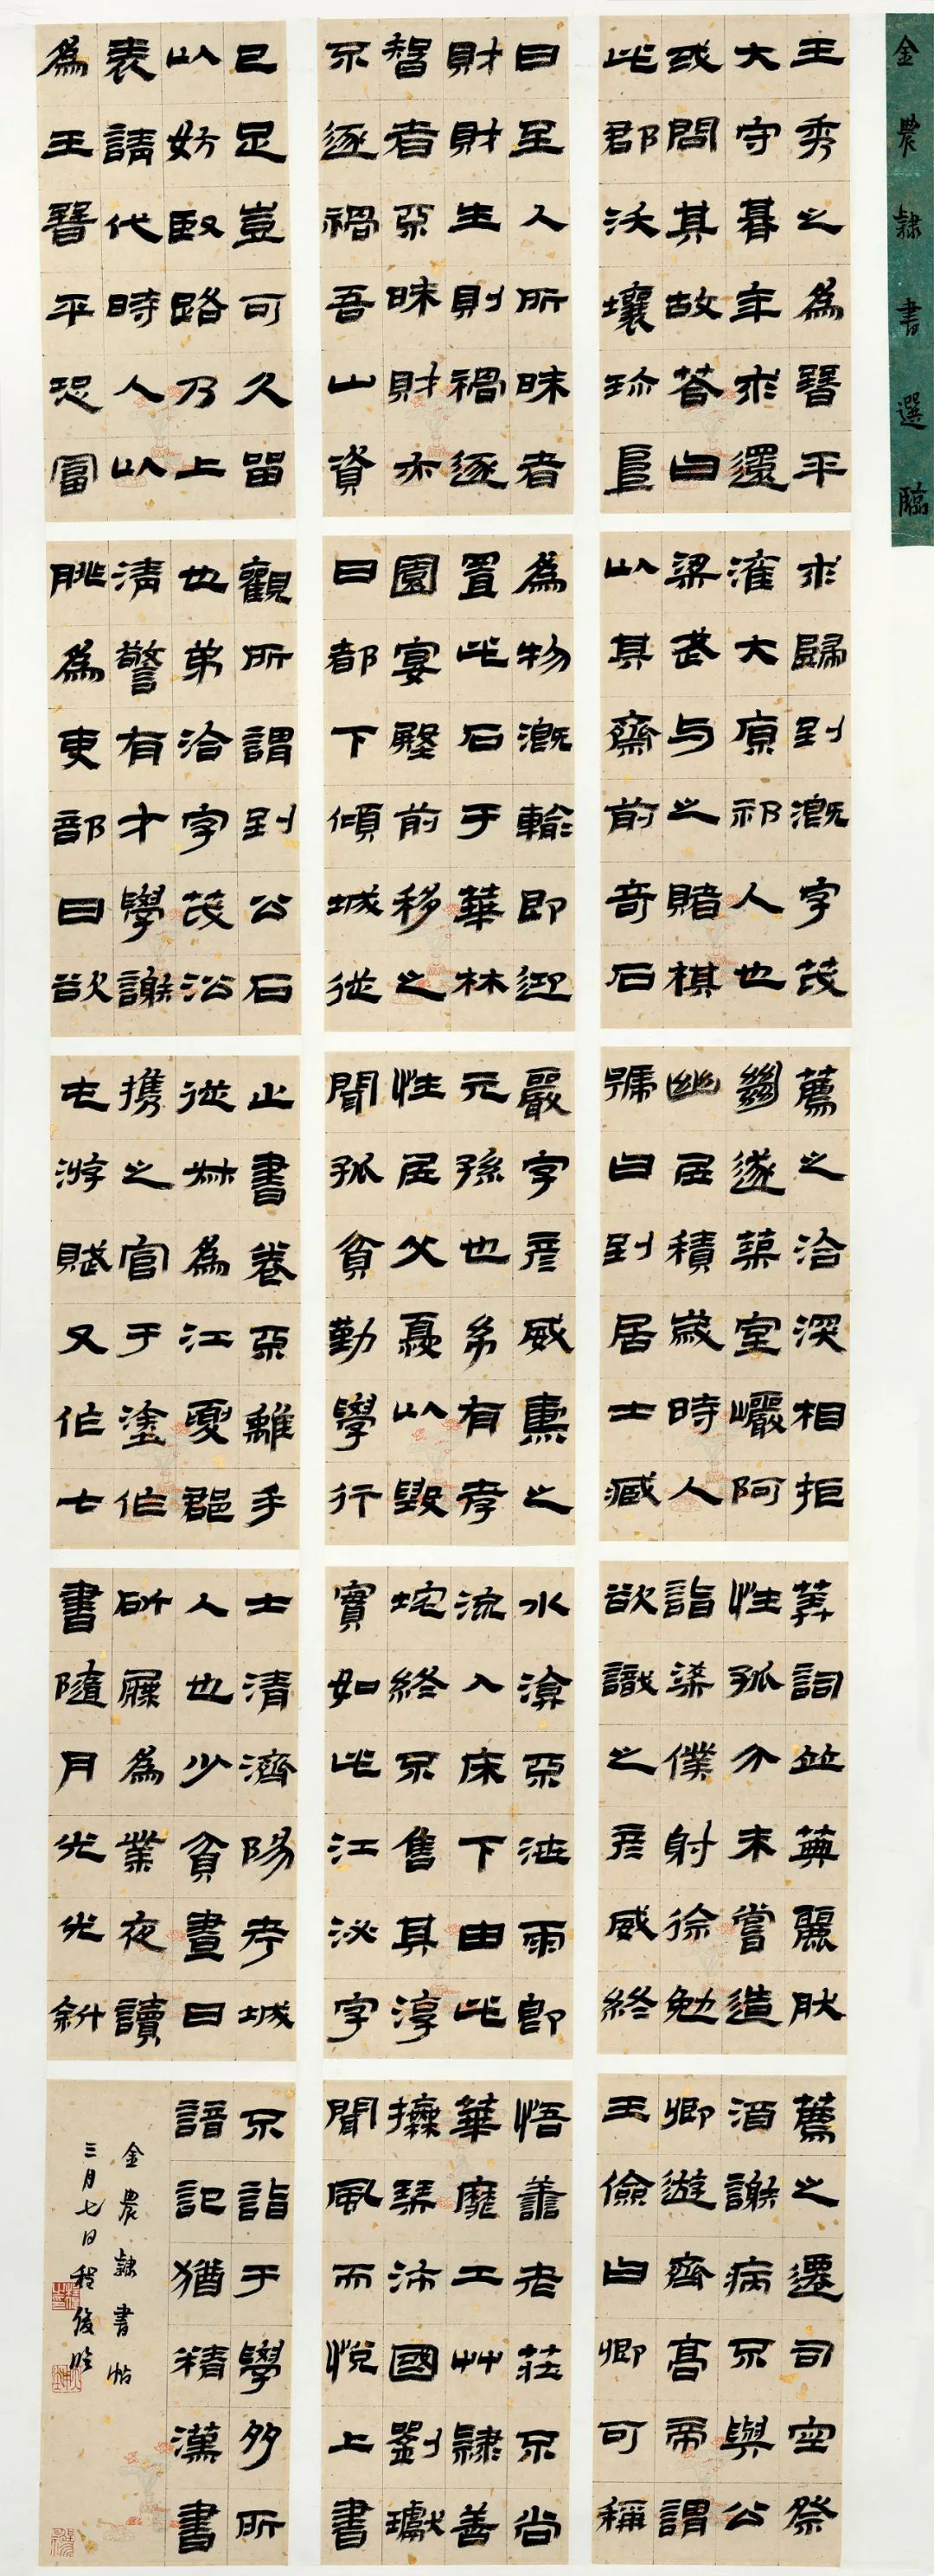 金農隸書選臨
王秀之為晉平
大守朞年求還
或問其故答曰
此郡沃壤珍阜
日至人所昧者
財財生則禍逐
智者不昧財亦
不逐禍吾山資
已足豈可久留
以妨臤路乃上
表請代時人以
為王晉平恐富
求歸到溉字茂
灌大原祁人也
梁武与之賭棋
以其齋前奇石
為物溉輸即迎
置此石于華林
園宴殿前移之
日都下傾城從
觀所謂到公石
也弟洽字茂沿
清警有才學謝
朓為吏部曰欲
薦之洽深相拒
遂築室巖阿
幽居積歲時人
號曰到居士臧
嚴字彥威燾之
元孫也幼有孝
性居父憂以毀
聞孤貧勤學行
止書卷不離手
從叔為江夏郡
攜之官于塗作
屯游賦又作七
筭詞並典麗肰
性孤介未嘗造
詣梁僕射徐勉
欲識之彥威終
水滂不沾雨即
流入床下由此
垞終不售其淳
實如此江泌字
士清濟陽考城
人也少貧晝日
斫屧為業夜讀
書隨月光光斜
薦之遷司空祭
酒謝病不與公
卿遊齊高帝謂
王儉曰卿可稱
悟善老莊不尚
華靡工艸隸善
操琴沛國劉瓛
聞風而悅上書
不詣于學多所
諳記猶精漢書
金農隸書帖
三月七日程俊臨